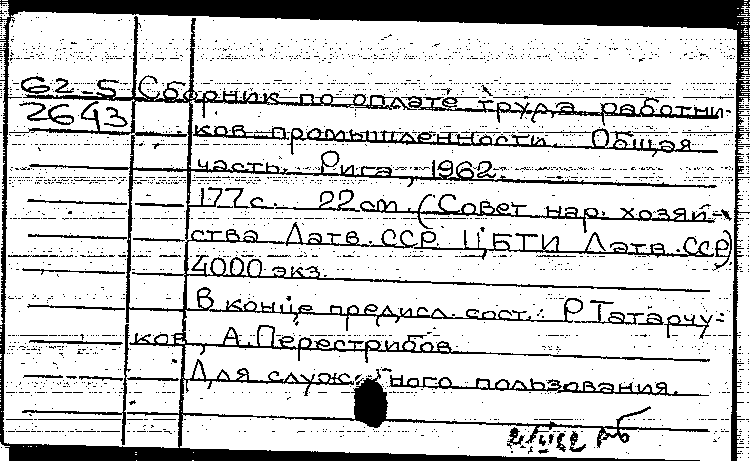 62-5 Сборник по оплате труда работни-
2643 ков промышленности. Общая
часть. Рига, 1962.
177с. 22см. (Совет нар. хозяй-
ства Латв. ССР. ЦБТИ Латв. ССР)
4000 экз.
В конце предисл. сост.: Р Татарчу-
ков, А. Перестрибов
Для служебного пользования.